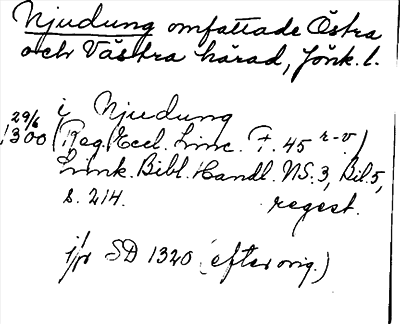 Njudung omfattade Östra
och Västra härad, Jönk. l.
i Njudung
29/6
1300 (Reg. Eccl. Linc. F. 45 r-v)
Link. Bibl. Handl. NS. 3, Bil 5,
s. 214. regest.
jfr SD 1320 (efter orig.)